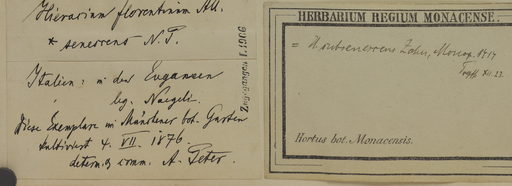 Hieracium florentinum All.
* senerrens N.P.
Italien: in den Euganeen
leg. Naegeli.
Diese Exemplare im Münchener bot. Garten
kultiviert 4. VII. 1876.
determ. & comm. A. Peter.
Zugegangen I. 1906
HERBARIUM REGIUM MONACENSE.
= H. Zahn, Monogr.
XII. 23.
Hortus bot. Monacensis.